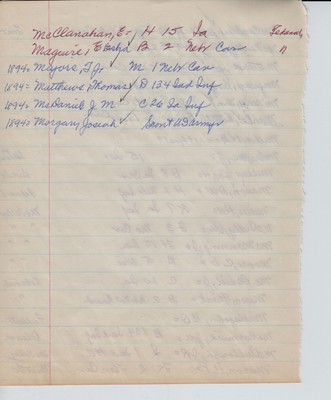 McClanahan, E., H 15 Ia
Maguire, B 2 Nebr Cav "
1894= Mayors, T. J. M 1 Nebr Cav
1894= Matthews, Thomas D 134 Ind Inf
1894= McDaniel J. M C 26 Ia Inf
1894= Morgan, Josiah Scout US Army